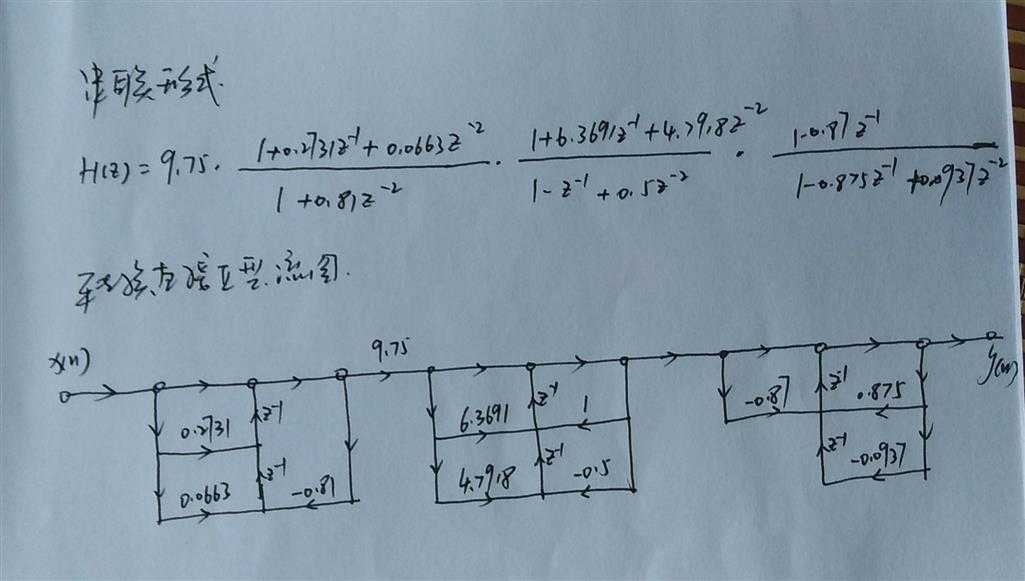 串联形式.
H(z) = 9.75 · (1+0.2731z⁻¹+0.0663z⁻²)/(1+0.81z⁻²) · (1+6.3691z⁻¹+4.7918z⁻²)/(1-z⁻¹+0.5z⁻²) · (1-0.87z⁻¹)/(1-0.875z⁻¹+0.0937z⁻²)
型流图.
x(n) 9.75 y(n)
0.2731 z⁻¹ 6.3691 z⁻¹ 1 -0.87 z⁻¹ 0.875
0.0663 z⁻¹ -0.81 4.7918 z⁻¹ -0.5 z⁻¹ -0.0937